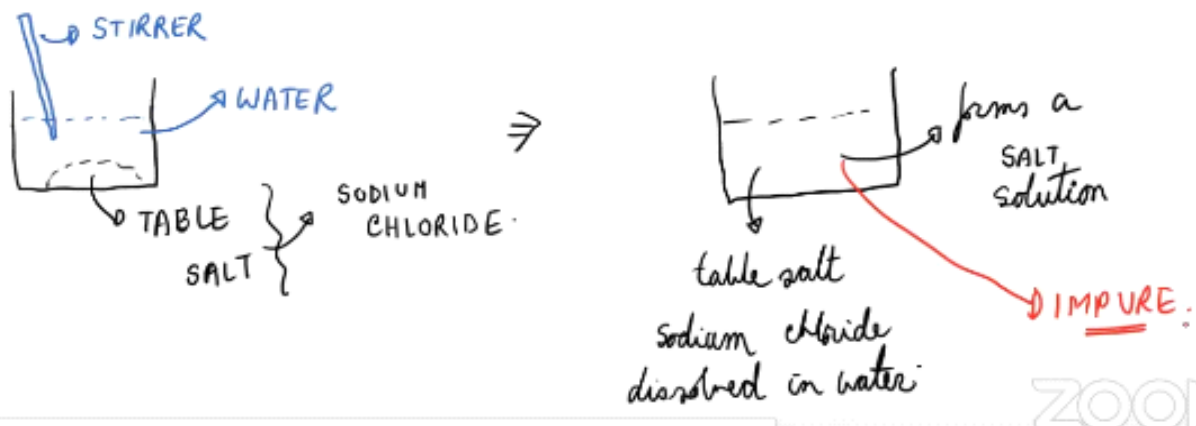 STIRRER
WATER
TABLE
SALT
SODIUM
CHLORIDE.
forms a
SALT
solution
table salt
sodium chloride
dissolved in water.
IMPURE.
ZOO